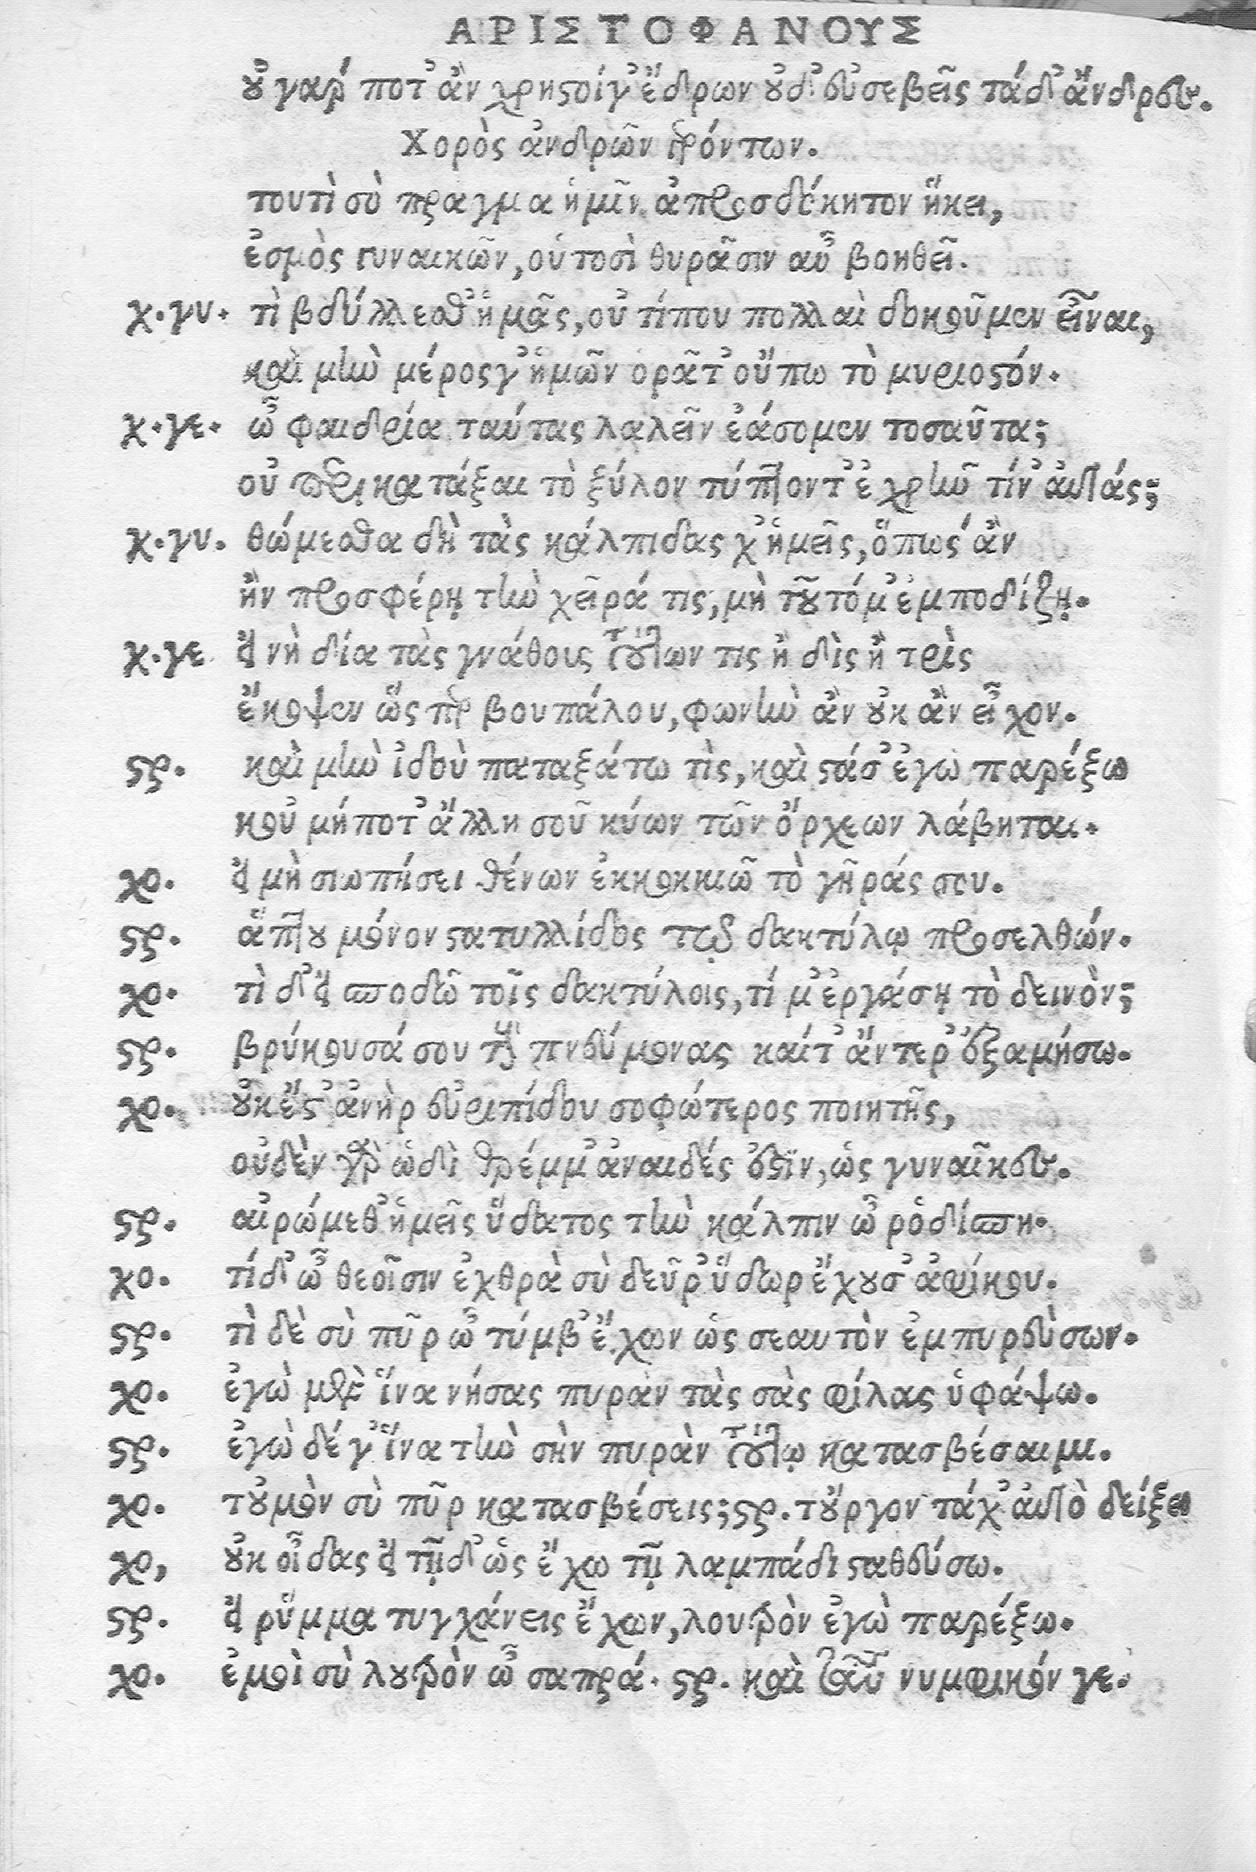 ΑΡΙΣΤΟΦΑΝΟΥΣ
οὐ γάρ ποτ' ἂν χρηστοί γ' ἔδρων οὐδ' εὐσεβεῖς τάδ' ἄνδρες.
Χορὸς ἀνδρῶν γερόντων.
τουτὶ σὺ πραγμα ἡμῖν ἀπροσδόκητον ἥκει,
ἐσμὸς γυναικῶν, οὑτοσὶ θυρᾶσιν αὖ βοηθεῖ.
χ.γυ. τὶ βδύλλεσθ' ἡμᾶς, οὔ τίπου πολλαὶ δοκοῦμεν εἶναι,
καὶ μὴν μέρος γ' ἡμῶν ὁρᾶτ' οὔπω τὸ μυριοστόν.
χ.γε. ὦ φαιδρία ταύτας λαλεῖν ἐάσομεν τοσαῦτα;
οὐ περικατάξαι τὸ ξύλον τύπτοντ' ἐχρῆν τίν' αὐτάς;
χ.γυ. θώμεσθα δὴ τὰς κάλπιδας χ' ἡμεῖς, ὅπως ἂν
ἢν προσφέρῃ τὴν χεῖρά τις, μὴ τοῦτό μ' ἐμποδίζῃ.
χ.γε εἰ νὴ δία τὰς γνάθους τούτων τις ἢ δὶς ἢ τρὶς
ἔκοψεν ὥσπερ βουπάλου, φωνὴν ἂν οὐκ ἂν εἶχον.
στρ. καὶ μὴν ἰδοὺ παταξάτω τὶς, καὶ στάσ' ἐγὼ παρέξω
κοὐ μήποτ' ἄλλη σοῦ κύων τῶν ὄρχεων λάβηται.
χο. εἰ μὴ σιωπήσει θένων ἐκκοκκιῶ τὸ γῆράς σου.
στρ. ἅπτου μόνον στατυλλίδος τῷ δακτύλῳ προσελθών.
χο. τὶ δ' εἰ σποδῶ τοῖς δακτύλοις, τί μ' ἐργάσῃ τὸ δεινὸν;
στρ. βρύκουσά σου τοὺς πνεύμονας καίτ' ἄντερ' ἐξαμήσω.
χο. οὐκ ἔστ' ἀνὴρ εὐριπίδου σοφώτερος ποιητῆς,
οὐδὲν γὰρ ὡδὶ θρέμμ' ἀναιδές ἐστϊν, ὡς γυναῖκες.
στρ. αἰρώμεθ' ἡμεῖς ὕδατος τὴν κάλπιν ὦ ῥοδίππη.
χο. τί δ' ὦ θεοῖσιν ἐχθρὰ σὺ δεῦρ' ὕδωρ ἔχουσ' ἀφίκου.
στρ. τὶ δὲ σὺ πῦρ ὦ τύμβ' ἔχων ὡς σεαυτὸν ἐμπυρεύσων.
χο. ἐγὼ μὲν ἵνα νήσας πυρὰν τὰς σὰς φίλας ὑφάψω.
στρ. ἐγὼ δέ γ' ἵνα τὴν σὴν πυρὰν τούτῳ κατασβέσαιμι.
χο. τοὐμὸν σὺ πῦρ κατασβέσεις; στρ. τοὖργον τάχ' αὐτὸ δείξει
χο, οὐκ οἶδας εἰ τῇδ' ὡς ἔχω τῇ λαμπάδι σταθεύσω.
στρ. εἰ ῥύμμα τυγχάνεις ἔχων, λουτρὸν ἐγὼ παρέξω.
χο. ἐμοὶ σὺ λουτρὸν ὦ σαπρά. στρ. καὶ ταῦτα νυμφικόν γε.